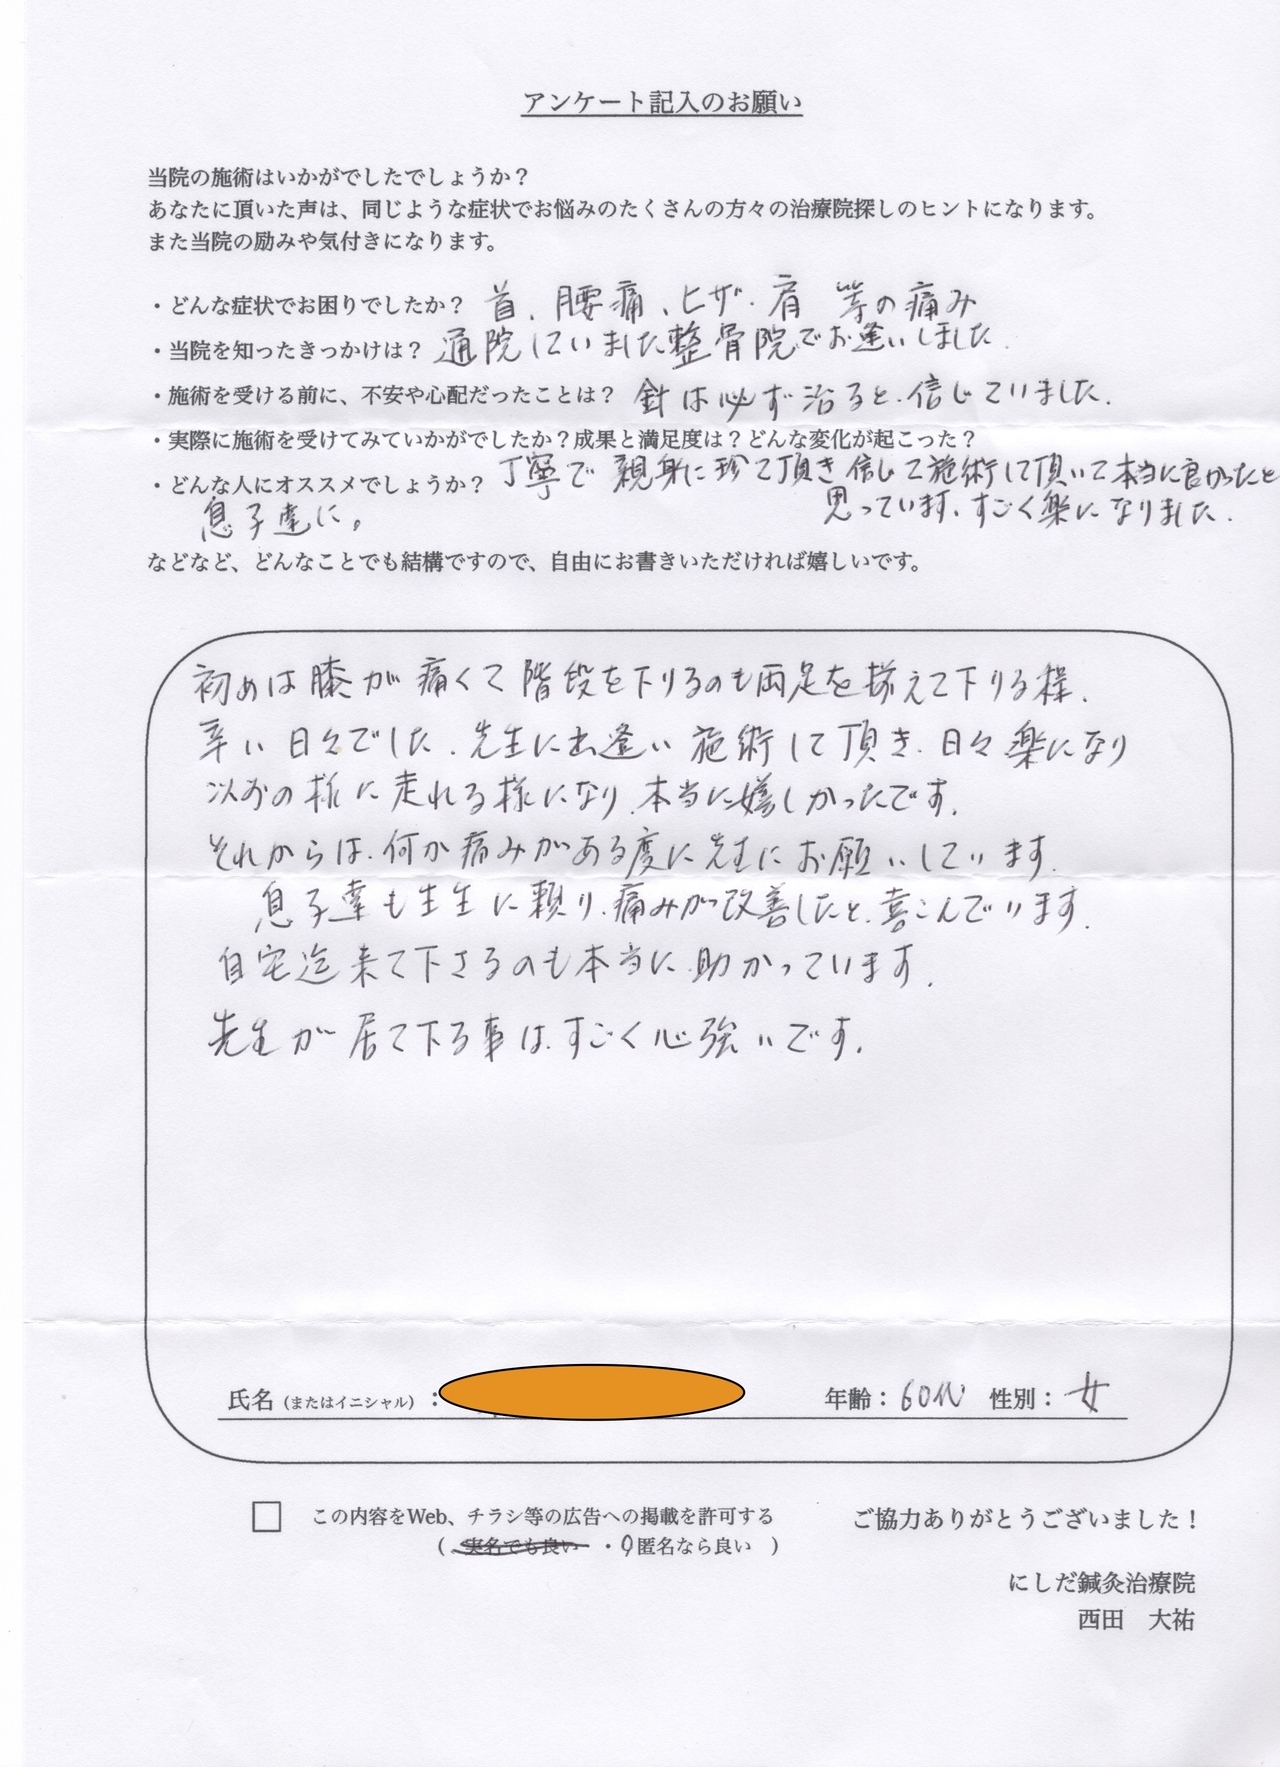 アンケート記入のお願い
当院の施術はいかがでしたでしょうか？
あなたに頂いた声は、同じような症状でお悩みのたくさんの方々の治療院探しのヒントになります。
また当院の励みや気付きになります。
・どんな症状でお困りでしたか？ 首、腰痛、ヒザ、肩 等の痛み
・当院を知ったきっかけは？ 通院していました整骨院でお逢いしました。
・施術を受ける前に、不安や心配だったことは？ 針は必ず治ると、信じていました。
・実際に施術を受けてみていかがでしたか？成果と満足度は？どんな変化が起こった？
丁寧で親身に珍て頂き信じて施術して頂いて本当に良かったと
思っています、すごく楽になりました。
・どんな人にオススメでしょうか？
息子達に。
などなど、どんなことでも結構ですので、自由にお書きいただければ嬉しいです。
初めは膝が痛くて階段を下りるのも両足を揃えて下りる様、
辛い日々でした。先生に出逢い施術して頂き、日々楽になり
以前の様に走れる様になり、本当に嬉しかったです。
それからは、何か痛みがある度に先生にお願いしています。
息子達も先生に頼り、痛みが改善したと、喜こんでいます。
自宅迄来て下さるのも本当に助かっています。
先生が居て下る事は、すごく心強いです。
氏名（またはイニシャル）：
年齢：60代 性別：女
この内容をWeb、チラシ等の広告への掲載を許可する
（ 実名でも良い ・匿名なら良い ）
ご協力ありがとうございました！
にしだ鍼灸治療院
西田 大祐